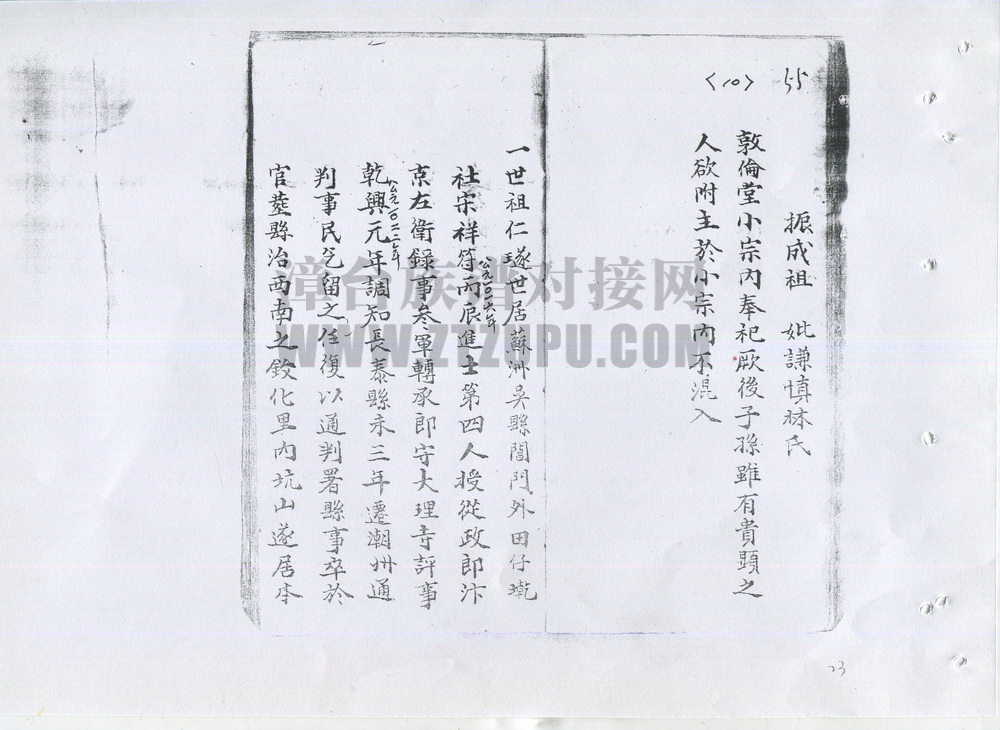 55
<10>
振成祖　妣謙慎林氏
敦倫堂小宗內奉祀厥後子孫雖有貴顕之
人欲附主於小宗內不混入
一世祖仁璲世居蘇洲吳縣閶門外田仔墘
社宋祥符丙辰進士第四人授從政郎汴
公元一〇一六年
京左衛錄事叅軍轉承郎守大理寺評事
乾興元年調知長泰縣未三年遷潮州通
公元一〇二二年
判事民乞留之任復以通判署縣事卒於
官塟縣治西南之鼓化里內坑山遂居本
漳台族谱对接网
WWW.ZTZUPU.COM
23